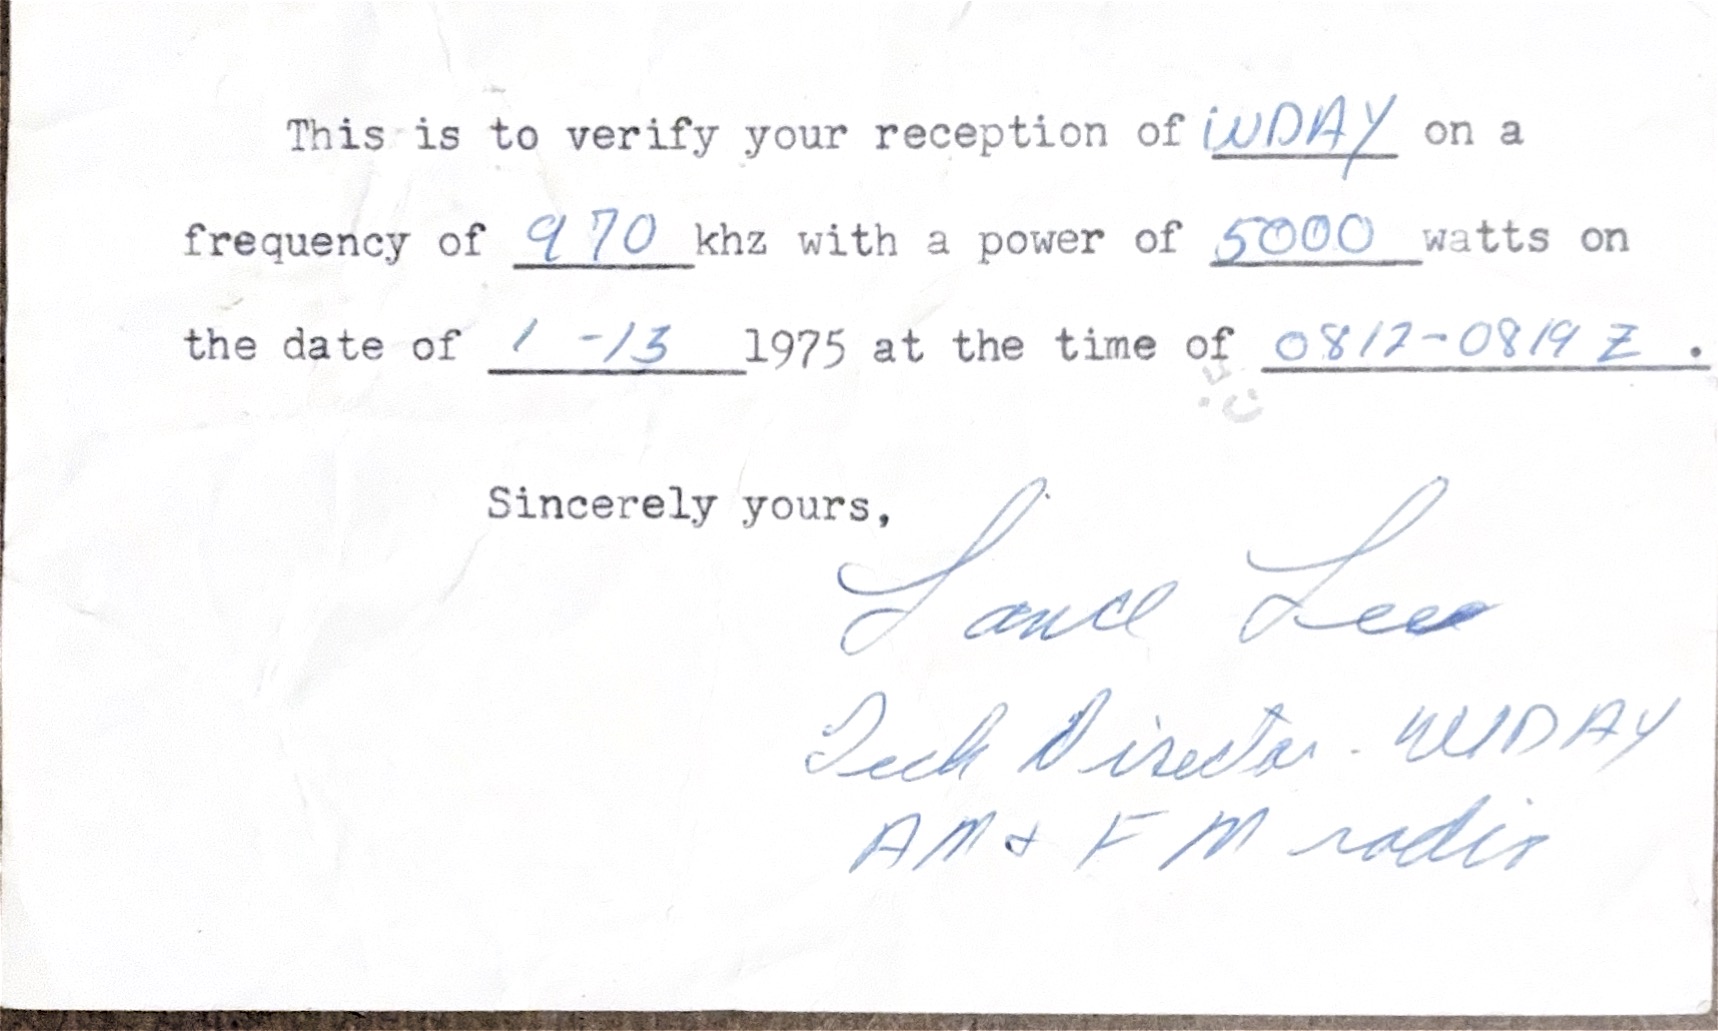 This is to verify your reception of WDAY on a
frequency of 970 khz with a power of 5000 watts on
the date of 1-13 1975 at the time of 0812-0819 Z.
Sincerely yours,
Lance Lee
Tech Director - WDAY
AM & FM radio